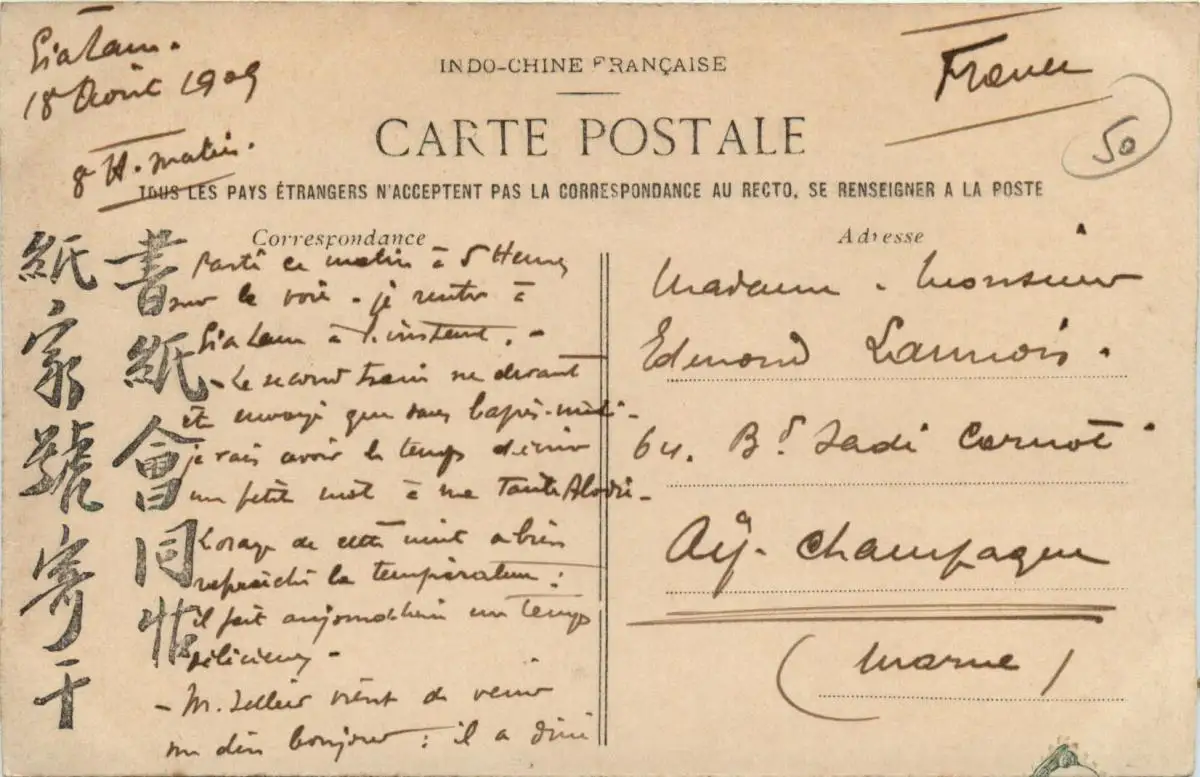 Gia Lam.
18 Août 1909
8 H. matin.
INDO-CHINE FRANÇAISE
CARTE POSTALE
TOUS LES PAYS ÉTRANGERS N'ACCEPTENT PAS LA CORRESPONDANCE AU RECTO, SE RENSEIGNER A LA POSTE
France
50
Correspondance
Adresse
書紙會同帖
紙家號寄于
Parti ce matin à 5 Heures
sur la voie - je rentre à
Gia Lam à l'instant. -
- Le second train ne devant
être envoyé que dans l'après-midi -
je vais avoir le temps d'écrire
un petit mot à ma Tante
L'orage de cette nuit a bien
rafraîchi la température :
il fait aujourd'hui un temps
délicieux -
- M. vient de venir
me dire bonjour : il a dîné
Madame . Monsieur
Edmond Lannois.
64. Bd. Sadi Carnot
Aÿ. Champagne
(Marne)